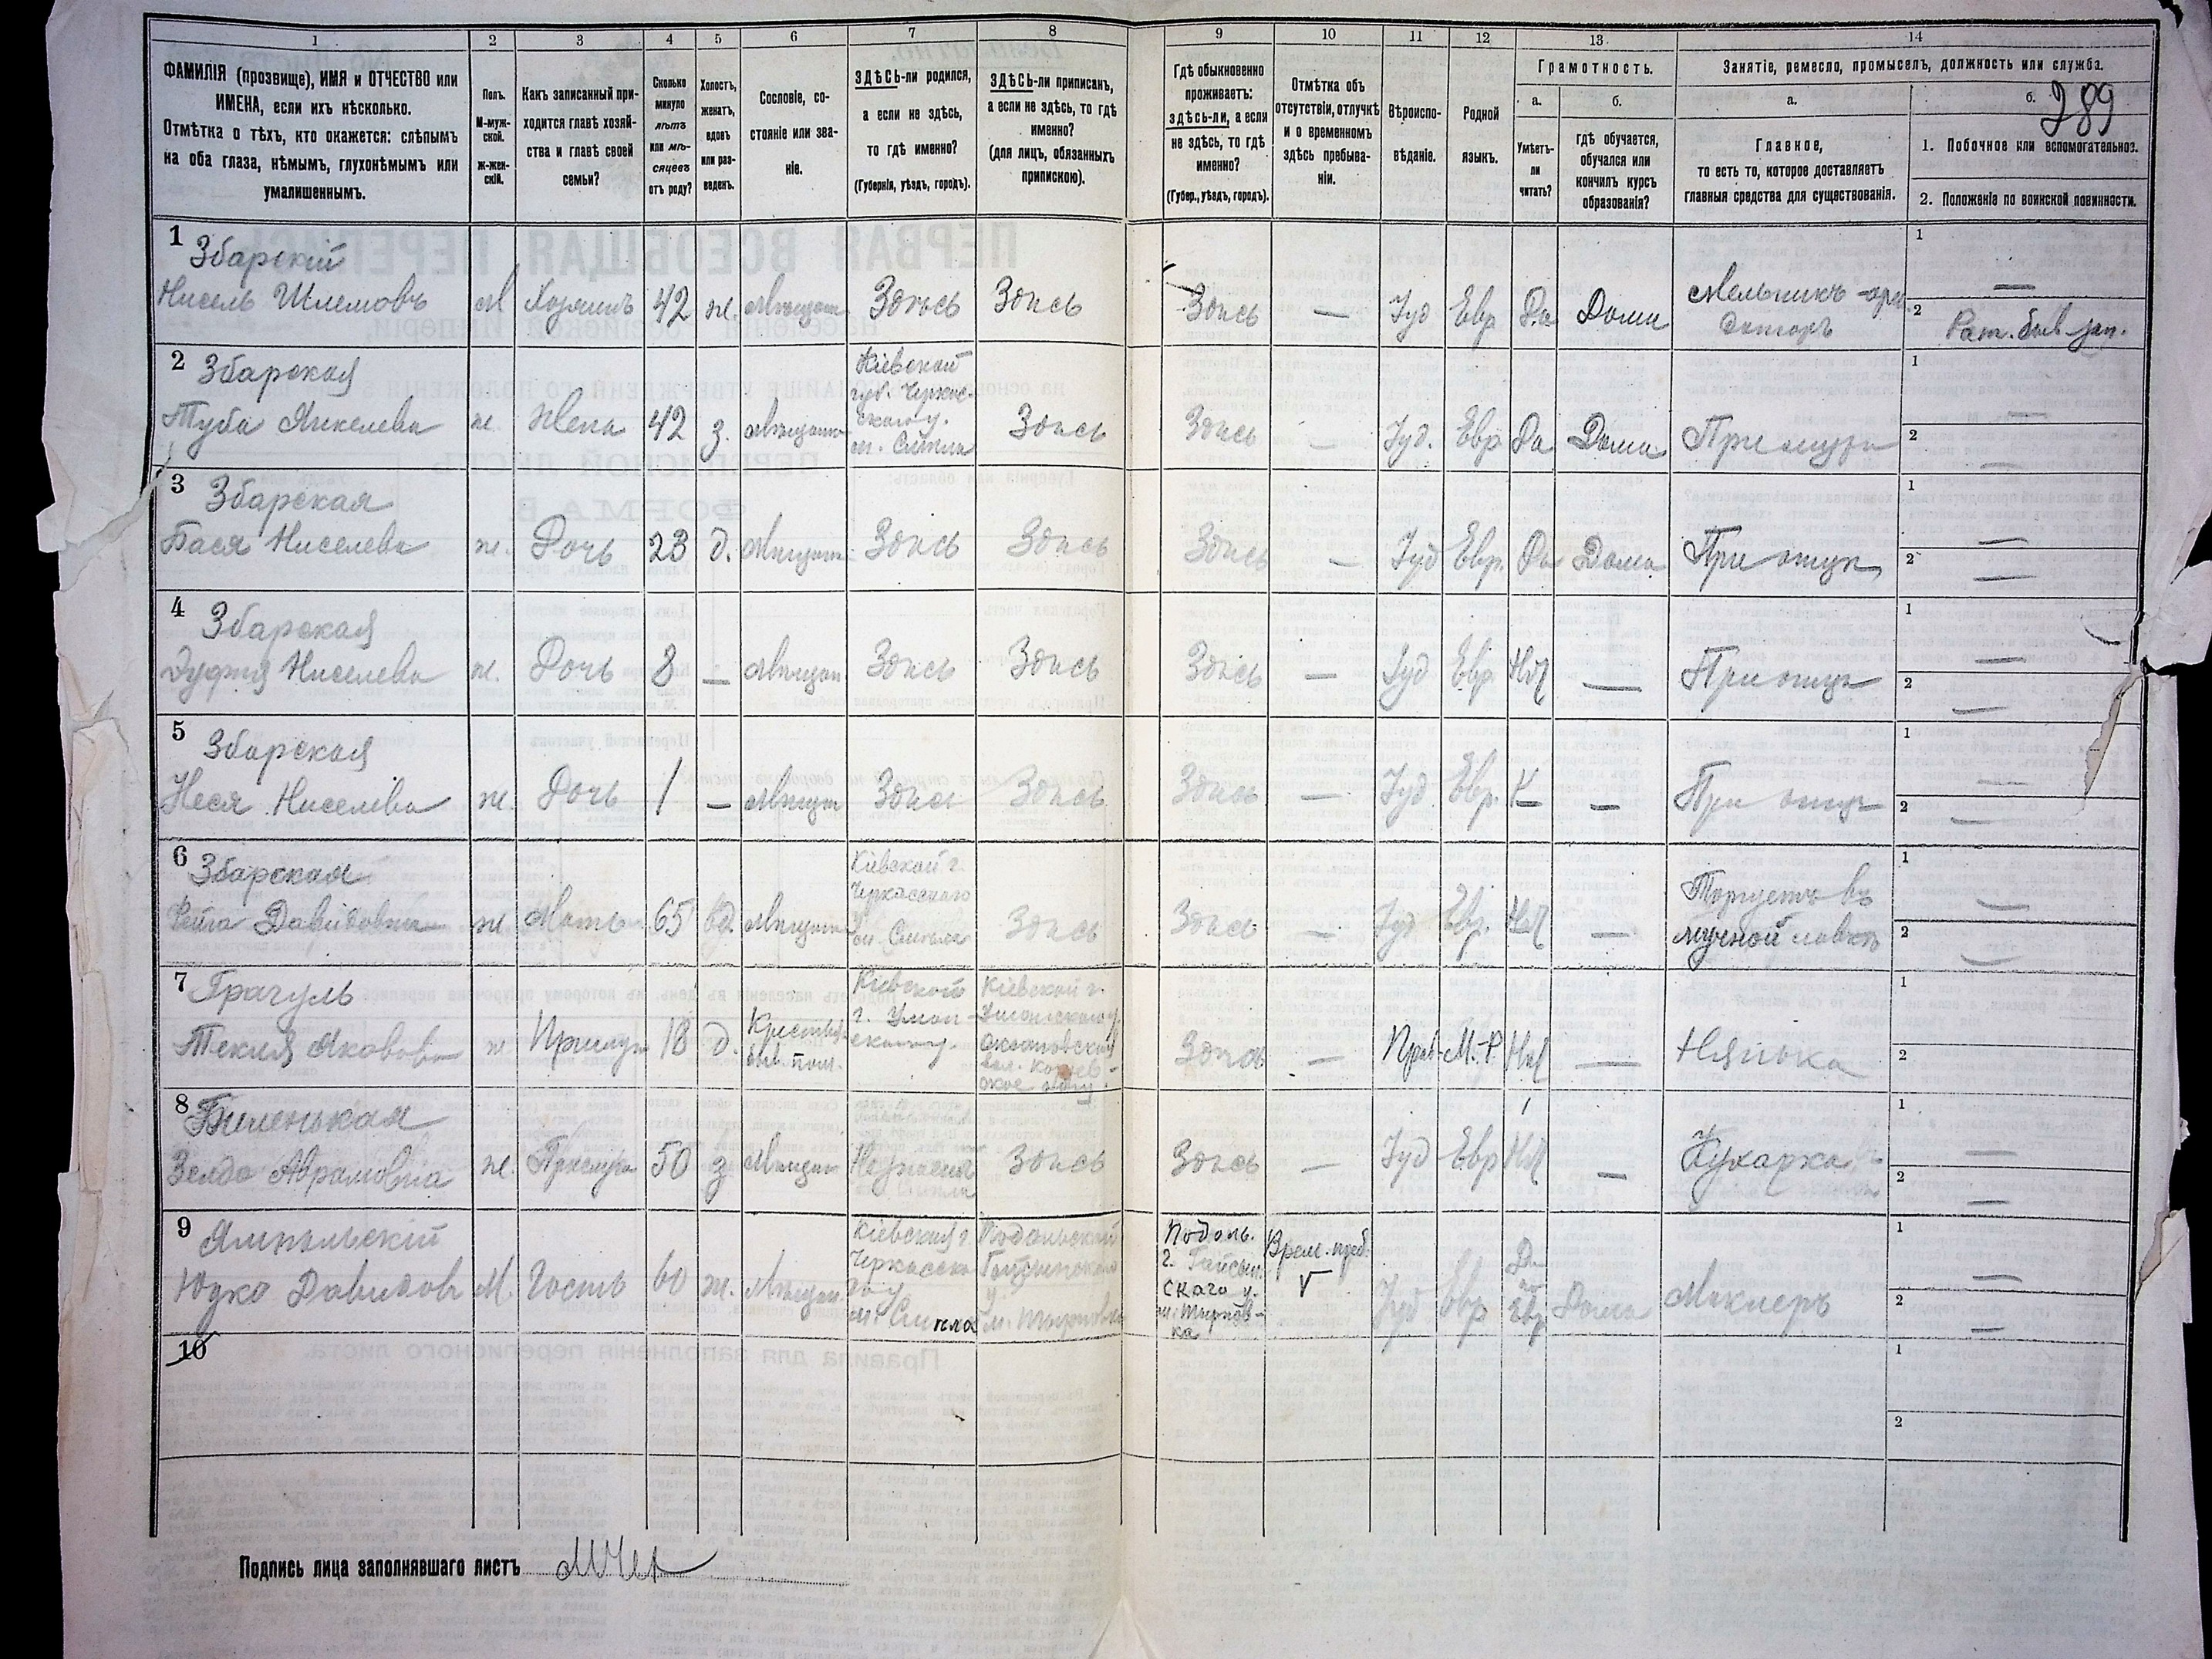 1 2 3 4 5 6 7 8 9 10 11 12 13 14
289
ФАМИЛІЯ (прозвище), ИМЯ и ОТЧЕСТВО или
ИМЕНА, если ихъ нѣсколько.
Отмѣтка о тѣхъ, кто окажется: слѣпымъ
на оба глаза, нѣмымъ, глухонѣмымъ или
умалишеннымъ.
Полъ.
М-муж-
ской.
ж-жен-
скій.
Какъ записанный при-
ходится главѣ хозяй-
ства и главѣ своей
семьи?
Сколько
минуло
лѣтъ
или мѣ-
сяцевъ
отъ роду?
Холостъ,
женатъ,
вдовъ
или раз-
веденъ.
Сословіе, со-
стояніе или зва-
ніе.
ЗДѢСЬ-ли родился,
а если не здѣсь,
то гдѣ именно?
(Губернія, уѣздъ, городъ).
ЗДѢСЬ-ли приписанъ,
а если не здѣсь, то гдѣ
именно?
(для лицъ, обязанныхъ
припискою).
Гдѣ обыкновенно
проживаетъ:
здѣсь-ли, а если
не здѣсь, то гдѣ
именно?
(Губер., уѣздъ, городъ).
Отмѣтка объ
отсутствіи, отлучкѣ
и о временномъ
здѣсь пребыва-
ніи.
Вѣроиспо-
вѣданіе.
Родной
языкъ.
Грамотность.
а.
Умѣетъ-
ли
читать?
б.
гдѣ обучается,
обучался или
кончилъ курсъ
образованія?
Занятіе, ремесло, промыселъ, должность или служба.
а.
Главное,
то есть то, которое доставляетъ
главныя средства для существованія.
б.
1. Побочное или вспомогательное.
2. Положеніе по воинской повинности.
1 Збарскій
Нисель Шлемовъ М Хозяинъ 42 ж. Мѣщан Здѣсь Здѣсь Здѣсь — Іуд Евр Да Дома Мельникъ-арен
даторъ
1 —
2 Рат. был зап.
2 Збарская
Туба Янкелева ж. Жена 42 з. Мѣщан
Кіевской
губ. Черкас-
скаго у.
м. Смѣла
Здѣсь Здѣсь — Іуд. Евр Да Дома При мужѣ
1 —
2 —
3 Збарская
Бася Ниселева ж. Дочь 23 д. Мѣщан Здѣсь Здѣсь Здѣсь — Іуд Евр. Да Дома При отцѣ
1 —
2 —
4 Збарская
Ниселева ж. Дочь 8 — Мѣщан Здѣсь Здѣсь Здѣсь — Іуд Евр Нѣт — При отцѣ
1 —
2 —
5 Збарская
Неся Ниселева ж. Дочь 1 — Мѣщан Здѣсь Здѣсь Здѣсь — Іуд Евр. — При отцѣ
1 —
2 —
6 Збарская
Давидовна ж Мать 65 вд Мѣщан
Кіевской г.
Черкасскаго
у.
м. Смѣла
Здѣсь Здѣсь — Іуд Евр. Нѣт — Торгуетъ въ
мучной лавкѣ
1 —
2 —
7 Грачуль
Текля Яковова ж Прислуга 18 д. Крестьян
быв. пом.
Кіевской
г. Уман-
скаго у.
Кіевской г.
Уманскаго у.
Здѣсь — Прав М.-Р. Нѣт — Нянька
1
2
8 Биленькая
Зелда Абрамовна ж. Прислуга 50 з Мѣщан Здѣсь Здѣсь — Іуд Евр Нѣт — Кухарка
1 —
2 —
9 Ямпольскій
Юдко Давидов М. Гость 60 ж. Мѣщан
Кіевская г
Черкасска
го у
м. Смѣла
Подольской
Гайсинскаго
у
Подоль.
г. Гайсин
скаго у.
м. Тырлов-
ка
Врем. преб.
Іуд Евр
Да
по
Евр
Дома Маклеръ
1 —
2 —
10
1
2
Подпись лица заполнявшаго листъ